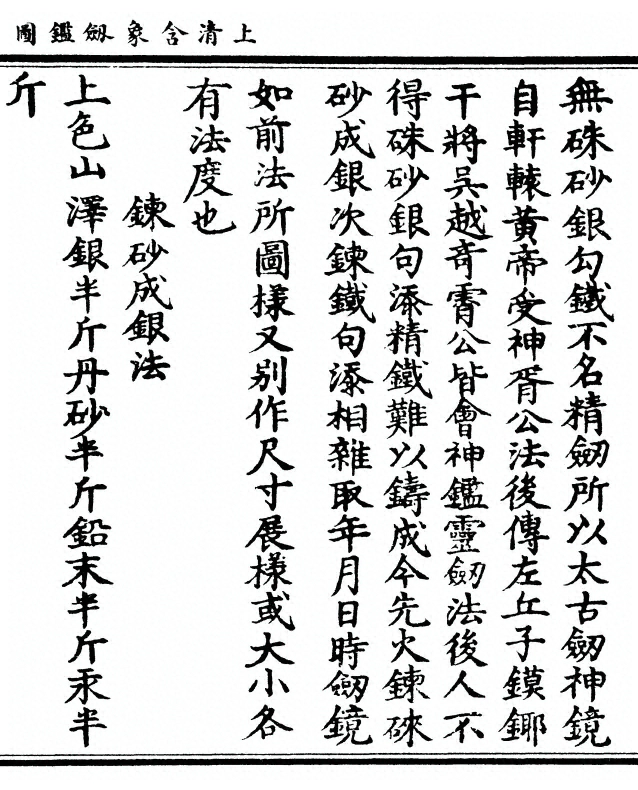 上清含象劔鑑圖
無硃砂銀勾鐵不名精劔所以太古劔神鏡
自軒轅黄帝受神胥公法後傳左丘子鏌鎁
干將吳越奇霄公皆會神鑑靈劔法後人不
得硃砂銀句添精鐵難以鑄成今先火鍊硃
砂成銀次鍊鐵句添相雜取年月日時劔鏡
如前法所圖樣又别作尺寸展樣或大小各
有法度也
鍊砂成銀法
上色山澤銀半斤丹砂半斤鉛末半斤汞半
斤